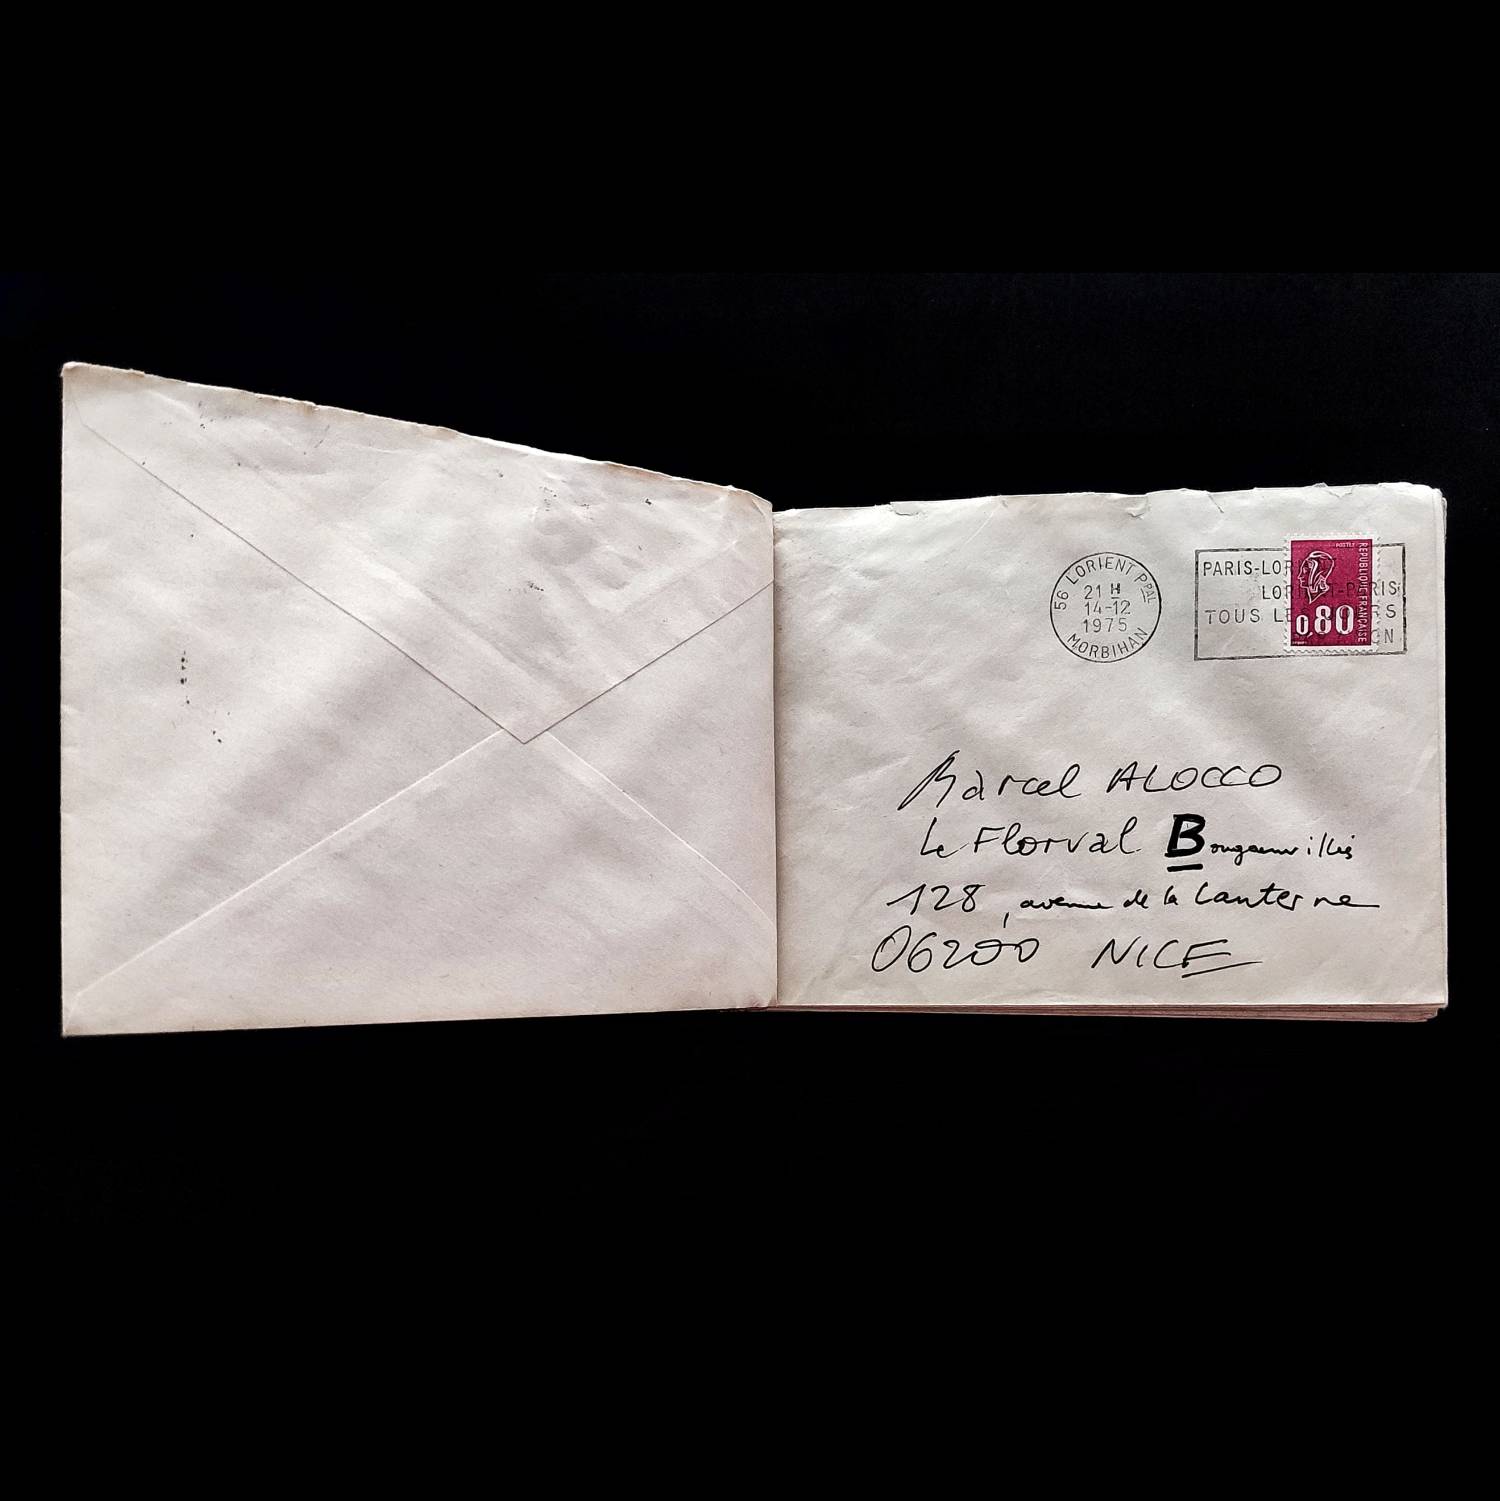 56 LORIENT PPAL
21 H
14-12
1975
MORBIHAN
PARIS-LOR
LORI T-PARIS
TOUS LE RS
ON
POSTES
REPUBLIQUE FRANCAISE
0,80
Marcel ALOCCO
Le Florval Bougainvillis
128, avenue de la Lanterne
06200 NICE